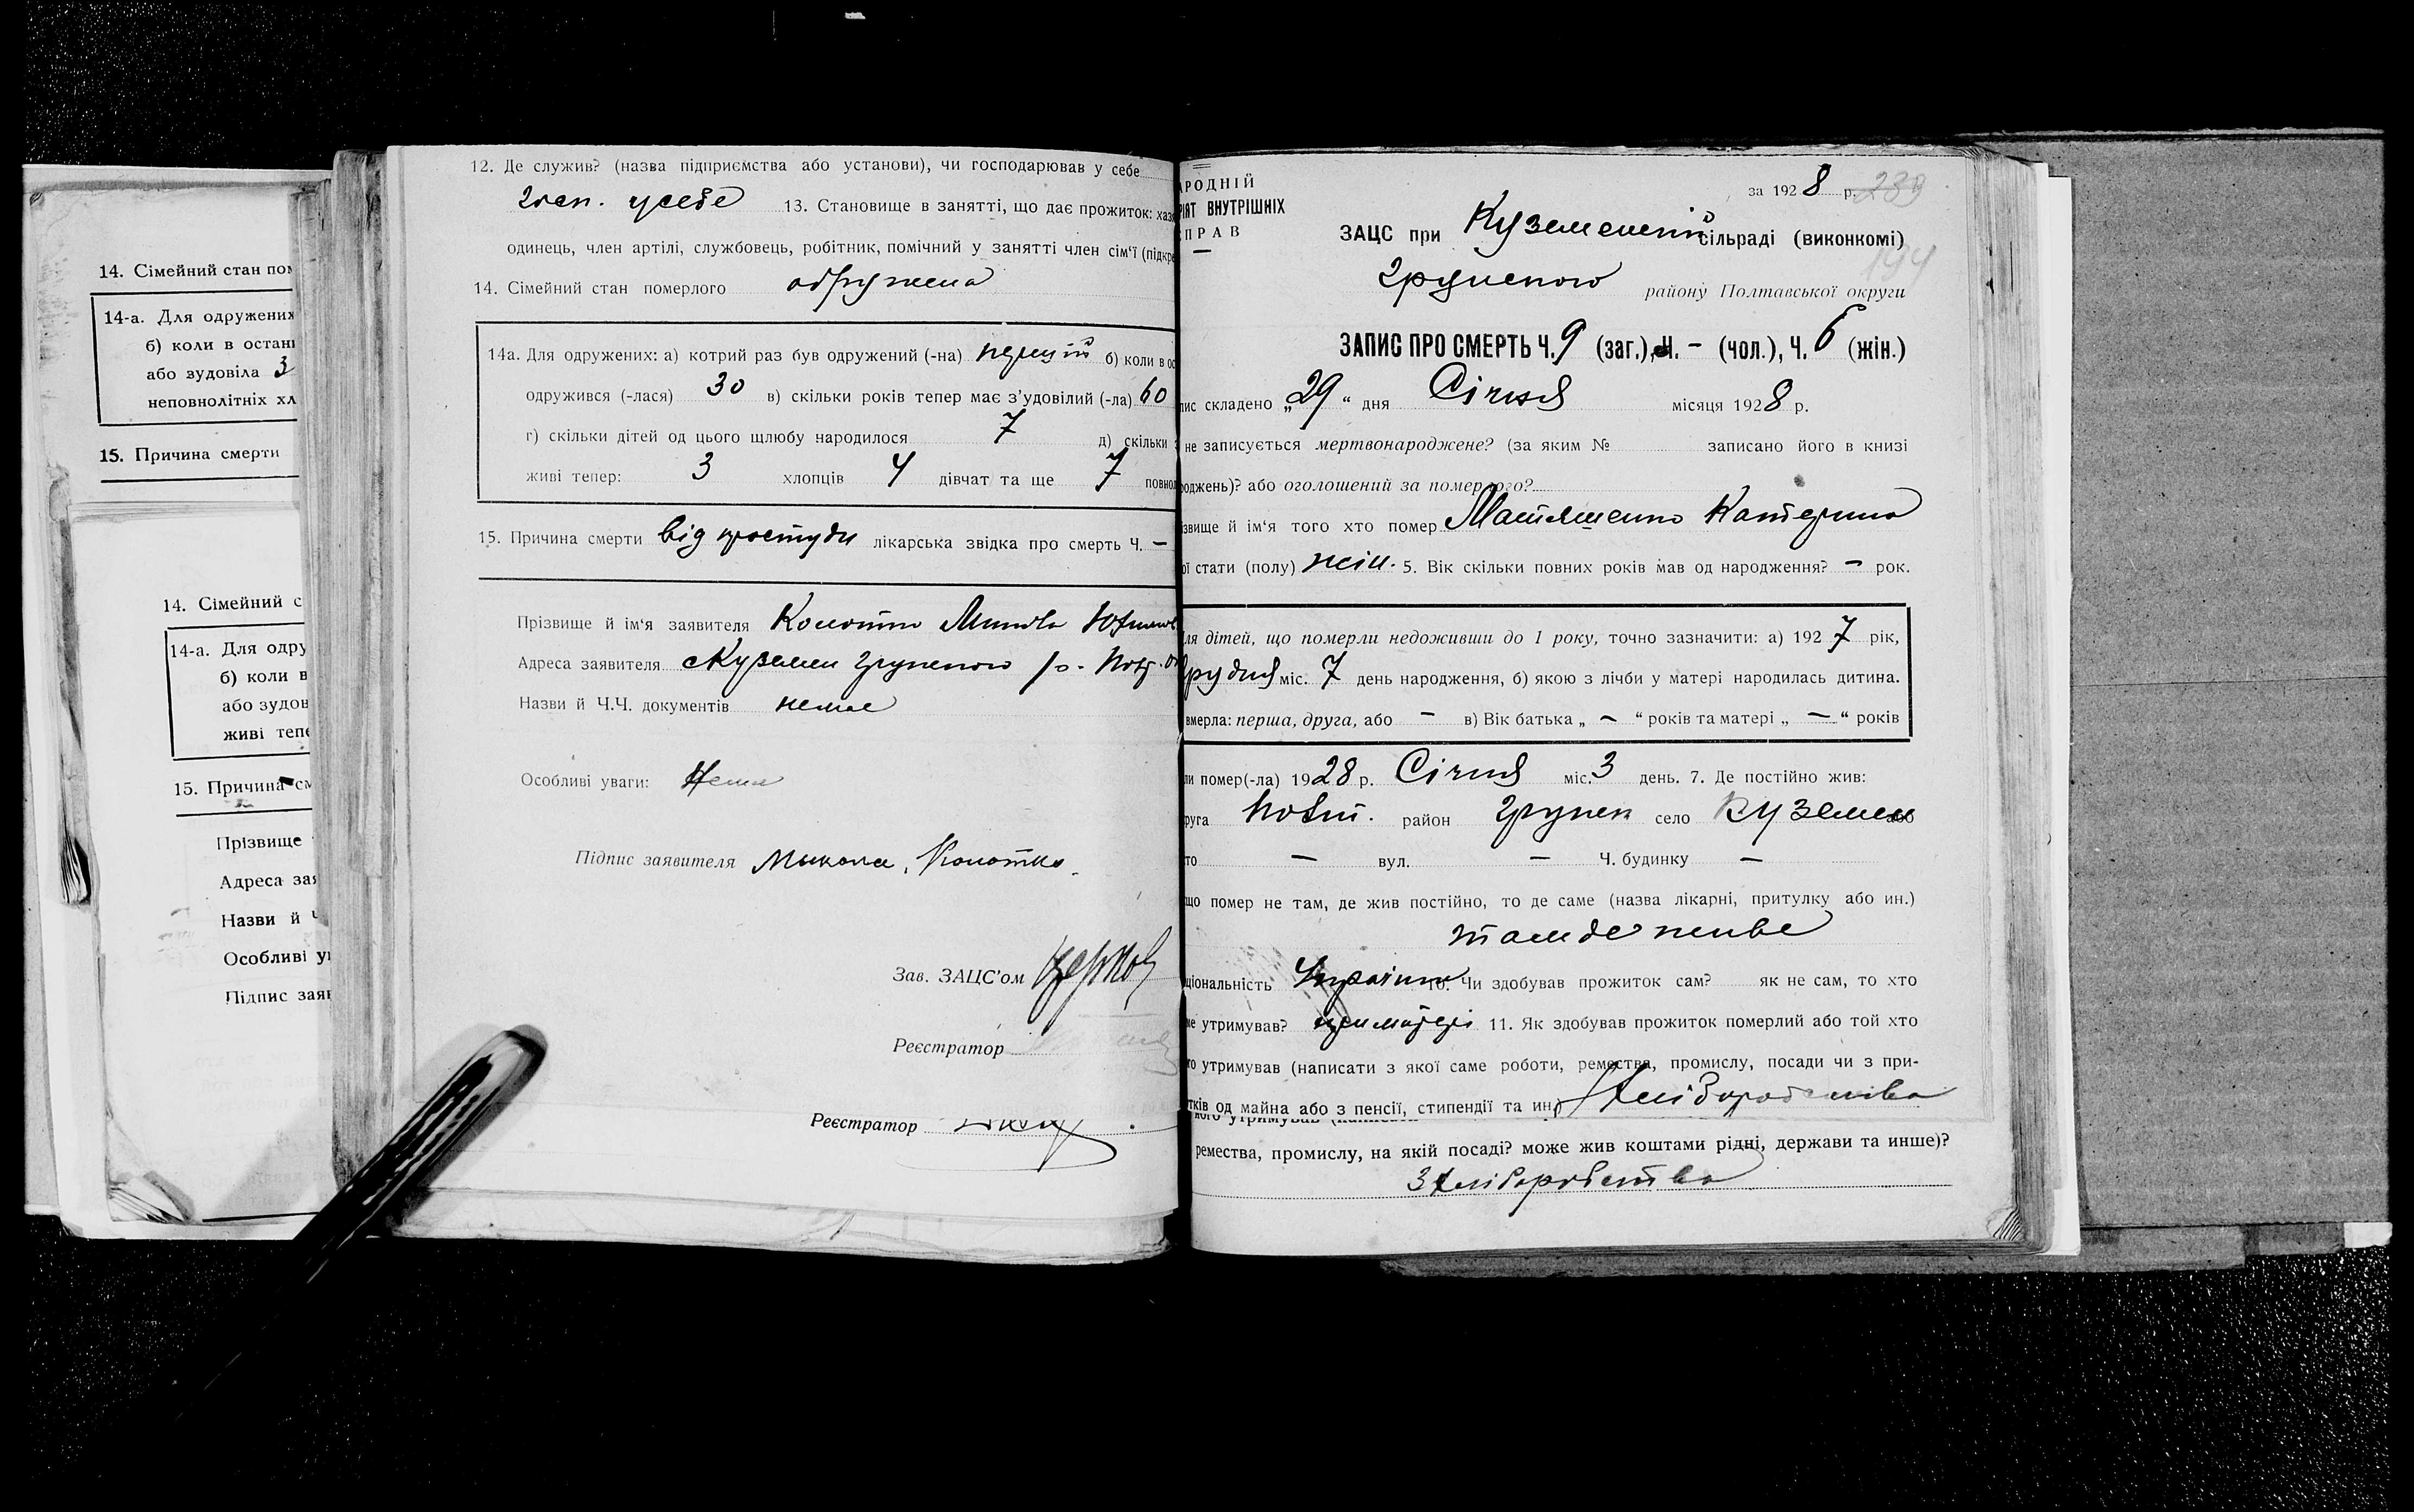 14. Сімейний стан пом
14-а. Для одружених
б) коли в останн
або зудовіла 3
неповнолітніх хл
15. Причина смерти
14. Сімейний с
14-а. Для одру
б) коли в
або зудов
живі тепе
15. Причина см
Прізвище
Адреса зая
Назви й Ч
Особливі ув
Підпис заяв
12. Де служив? (назва підприємства або установи), чи господарював у себе
усебе 13. Становище в занятті, що дає прожиток: хазя
одинець, член артілі, службовець, робітник, помічний у занятті член сім'ї (підкре
14. Сімейний стан померлого одружена
14а. Для одружених: а) котрий раз був одружений (-на) перший б) коли в ос
одружився (-лася) 30 в) скільки років тепер має з'удовілий (-ла) 60
г) скільки дітей од цього щлюбу народилося 7 д) скільки з
живі тепер: 3 хлопців 4 дівчат та ще 7 повнол
15. Причина смерти від простуди лікарська звідка про смерть Ч. —
Прізвище й ім'я заявителя Копотко Микола
Адреса заявителя с Куземен Грунского р. Полт.
Назви й Ч.Ч. документів немає
Особливі уваги: Нема
Підпис заявителя Микола Копотко.
Зав. ЗАЦС'ом
Реєстратор
Реєстратор
АРОДНІЙ
РІЯТ ВНУТРІШНІХ
ПРАВ
за 1928 р. 239
ЗАЦС при Куземенській сільраді (виконкомі)
194
Грунского району Полтавської округи
ЗАПИС ПРО СМЕРТЬ Ч. 9 (заг.), Ч. – (чол.), Ч. 6 (жін.)
пис складено „29“ дня Січня місяця 1928 р.
не записується мертвонароджене? (за яким № записано його в книзі
роджень)? або оголошений за померлого?
ізвище й ім'я того хто помер Матяшенко Катерина
ої стати (полу) жін. 5. Вік скільки повних років мав од народження? – рок.
ля дітей, що померли недоживши до 1 року, точно зазначити: а) 1927 рік,
Грудня міс. 7 день народження, б) якою з лічби у матері народилась дитина.
вмерла: перша, друга, або – в) Вік батька „ – “ років та матері „ – “ років
ли помер(-ла) 1928 р. Січня міс. 3 день. 7. Де постійно жив:
руга Полт. район Грунск село Куземен або
то — вул. — Ч. будинку —
що помер не там, де жив постійно, то де саме (назва лікарні, притулку або ин.)
там де живе
ціональність Українка 10. Чи здобував прожиток сам? як не сам, то хто
ме утримував? при матері 11. Як здобував прожиток померлий або той хто
го утримував (написати з якої саме роботи, ремества, промислу, посади чи з при-
тків од майна або з пенсії, стипендії та ин. Хліборобства
ного утримував (написати
ремества, промислу, на якій посаді? може жив коштами рідні, держави та инше)?
З Хліборобства